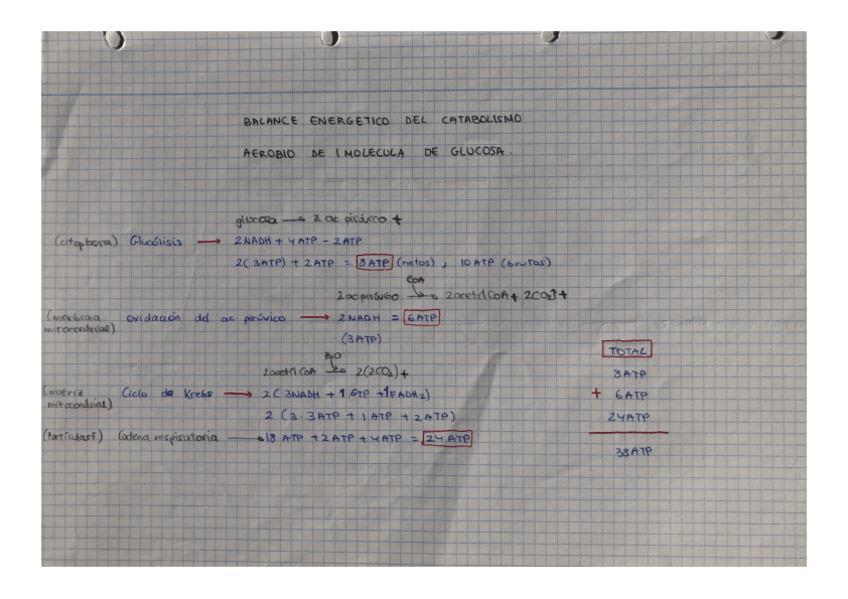 BALANCE ENERGETICO DEL CATABOLISMO
AEROBIO DE 1 MOLECULA DE GLUCOSA.
glucosa → 2 ac pirúvico +
(citoplasma) Glucólisis → 2NADH + 4ATP - 2ATP
2(3ATP) + 2ATP = 8ATP (netos), 10ATP (brutos)
CoA
2ac pirúvico → 2acetil CoA + 2CO2↑ +
(membrana mitocondrial) oxidación del ac pirúvico → 2NADH = 6ATP
(3ATP)
H2O
2acetil CoA → 2(2CO2) +
(matriz mitocondrial) Ciclo de Krebs → 2(3NADH + 1GTP + 1FADH2)
2 (3·3ATP + 1ATP + 2ATP)
(partículas F) Cadena respiratoria → 18 ATP + 2ATP + 4ATP = 24 ATP
TOTAL
8ATP
+ 6ATP
24ATP
38ATP